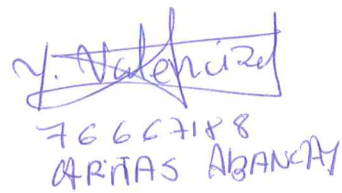 Y. Valenzuela
76667188
CARITAS ABANCAY